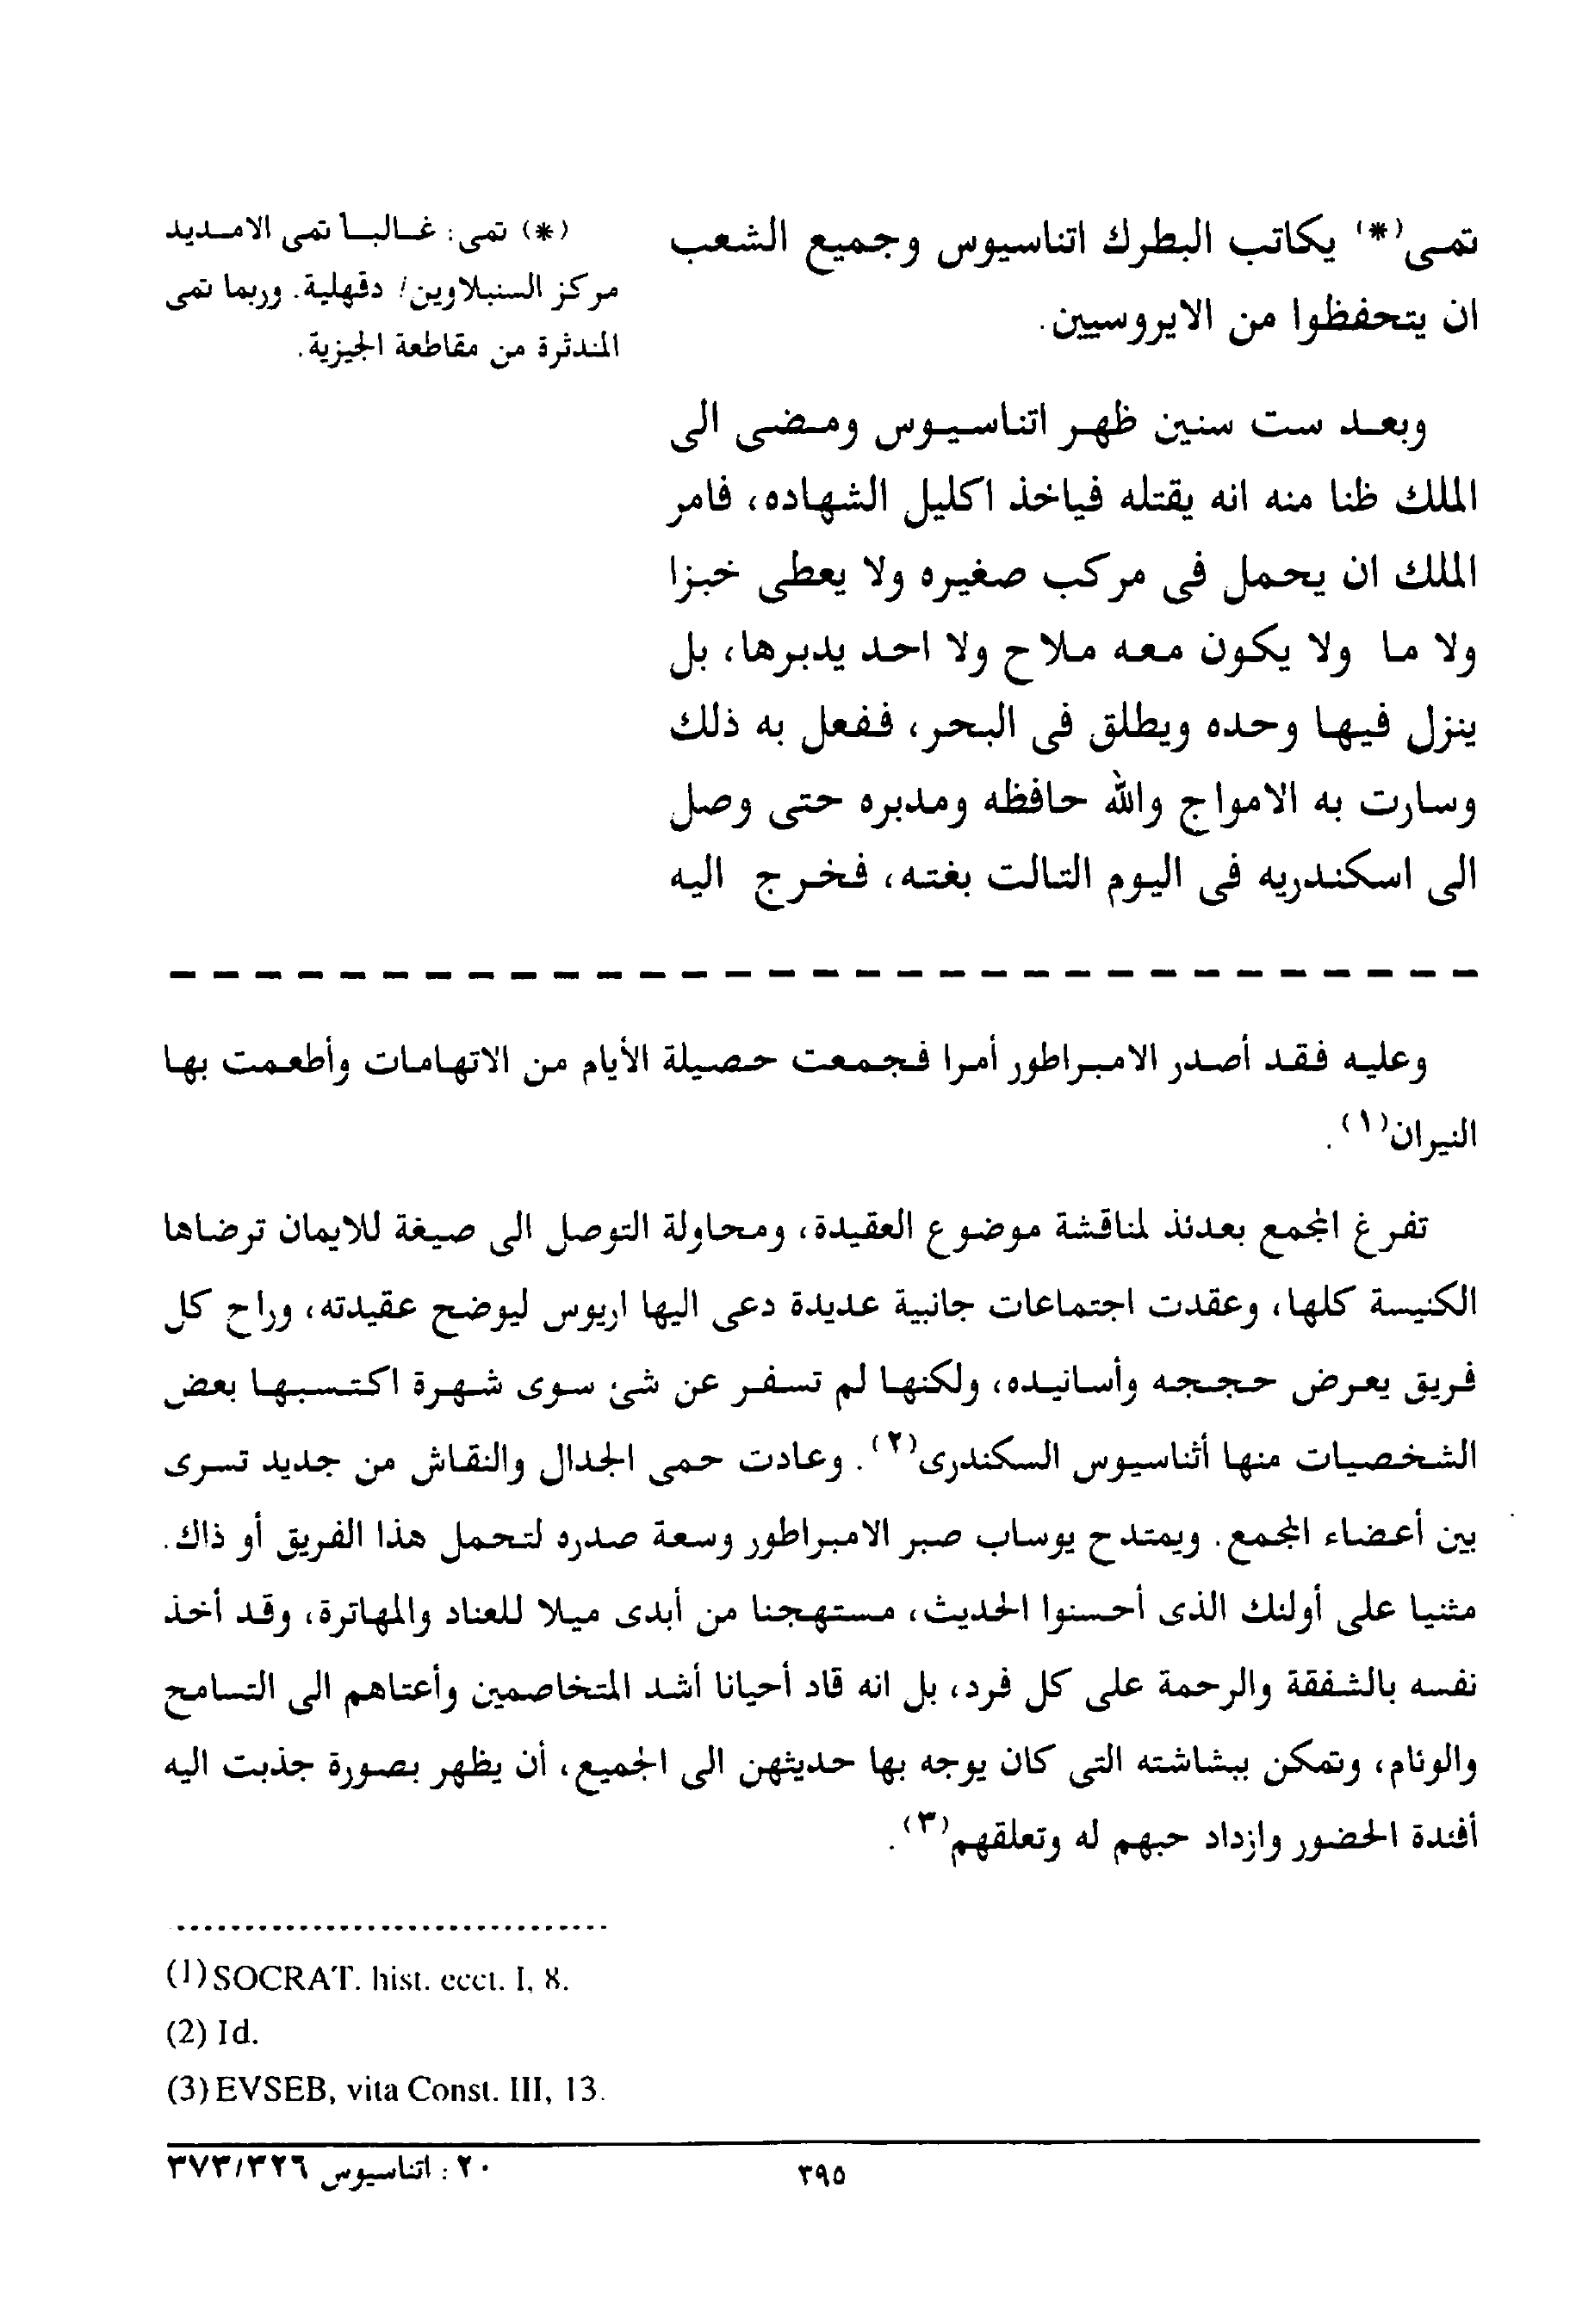 تمى(*) يكاتب البطرك اتناسيوس وجميع الشعب
ان يتحفظوا من الايروسيين.
وبعد ست سنين ظهر اتناسيوس ومضى الى
الملك ظنا منه انه يقتله فياخذ اكليل الشهاده، فامر
الملك ان يحمل فى مركب صغيره ولا يعطى خبزا
ولا ما ولا يكون معه ملاح ولا احد يدبرها، بل
ينزل فيها وحده ويطلق فى البحر، ففعل به ذلك
وسارت به الامواج والله حافظه ومدبره حتى وصل
الى اسكندريه فى اليوم التالت بغته، فخرج اليه
(*) تمى: غالبا تمى الامديد
مركز السنبلاوين/ دقهلية. وربما تمى
المندثرة من مقاطعة الجيزية.
وعليه فقد أصدر الامبراطور أمرا فجمعت حصيلة الأيام من الاتهامات وأطعمت بها
النيران(١).
تفرغ المجمع بعدئذ لمناقشة موضوع العقيدة، ومحاولة التوصل الى صيغة للايمان ترضاها
الكنيسة كلها، وعقدت اجتماعات جانبية عديدة دعى اليها اريوس ليوضح عقيدته، وراح كل
فريق يعرض حججه وأسانيده، ولكنها لم تسفر عن شئ سوى شهرة اكتسبها بعض
الشخصيات منها أثناسيوس السكندرى(٢). وعادت حمى الجدال والنقاش من جديد تسرى
بين أعضاء المجمع. ويمتدح يوساب صبر الامبراطور وسعة صدره لتحمل هذا الفريق أو ذاك.
مثنيا على أولئك الذى أحسنوا الحديث، مستهجنا من أبدى ميلا للعناد والمهاترة، وقد أخذ
نفسه بالشفقة والرحمة على كل فرد، بل انه قاد أحيانا أشد المتخاصمين وأعتاهم الى التسامح
والوئام، وتمكن ببشاشته التى كان يوجه بها حديثهن الى الجميع، أن يظهر بصورة جذبت اليه
أفئدة الحضور وازداد حبهم له وتعلقهم(٣).
(1) SOCRAT. hist. ecct. I, 8.
(2) Id.
(3) EVSEB, vita Const. III, 13.
٣٩٥
٢٠ : اتناسيوس ٣٧٣/٣٢٦